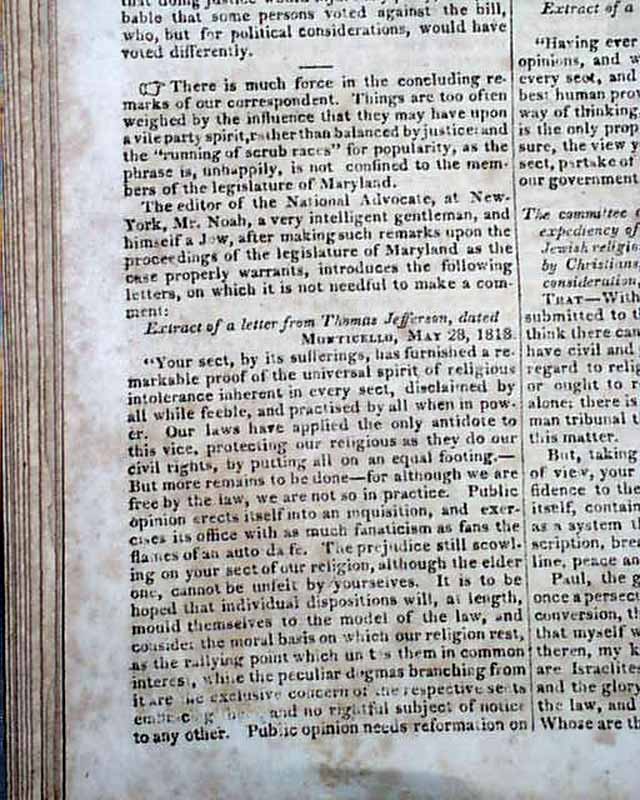 bable that some persons voted against the bill,
who, but for political considerations, would have
voted differently.
There is much force in the concluding re-
marks of our correspondent. Things are too often
weighed by the influence that they may have upon
a vile party spirit, rather than balanced by justice: and
the "running of scrub races" for popularity, as the
phrase is, unhappily, is not confined to the mem-
bers of the legislature of Maryland.
The editor of the National Advocate, at New-
York, Mr. Noah, a very intelligent gentleman, and
himself a Jew, after making such remarks upon the
proceedings of the legislature of Maryland as the
case properly warrants, introduces the following
letters, on which it is not needful to make a com-
ment:
Extract of a letter from Thomas Jefferson, dated
Monticello, May 28, 1818.
"Your sect, by its sufferings, has furnished a re-
markable proof of the universal spirit of religious
intolerance inherent in every sect, disclaimed by
all while feeble, and practised by all when in pow-
er. Our laws have applied the only antidote to
this vice, protecting our religious as they do our
civil rights, by putting all on an equal footing.—
But more remains to be done—for although we are
free by the law, we are not so in practice. Public
opinion erects itself into an inquisition, and exer-
cises its office with as much fanaticism as fans the
flames of an auto da fe. The prejudice still scowl-
ing on your sect of our religion, although the elder
one, cannot be unfelt by yourselves. It is to be
hoped that individual dispositions will, at length,
mould themselves to the model of the law, and
consider the moral basis on which our religion rest,
as the rallying point which unites them in common
interest, while the peculiar dogmas branching from
it are the exclusive concern of the respective sects
and no rightful subject of notice
to any other. Public opinion needs reformation on
Extract of a
"Having ever
opinions, and w
every sect, and
best human prov
way of thinking,
is the only prop
sure, the view y
sect, partake of
our government
The committee
expediency of
Jewish religio
by Christians,
consideration,
That—With
submitted to t
think there can
have civil and
regard to relig
or ought to r
alone; there is
man tribunal t
this matter.
But, taking
of view, your
fidence to the
itself, contain
as a system th
scription, brea
line, peace an
Paul, the g
once a persecut
conversion, th
that myself w
theren, my k
are Israelites
and the glory
the law, and
Whose are th